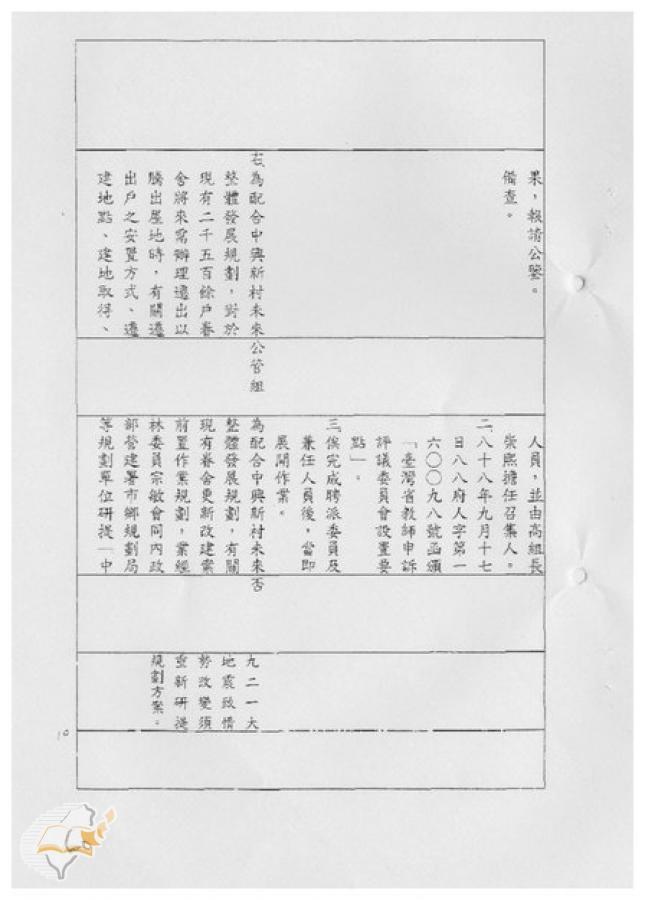 果，報請公鑒。
備查。
人員，並由高組長
崇熙擔任召集人。
二、八十八年九月十七
日八八府人字第一
六〇〇九八號函頒
「臺灣省教師申訴
評議委員會設置要
點」。
三、俟完成聘派委員及
兼任人員後，當即
展開作業。
為配合中興新村未來
整體發展規劃，對於
現有二千五百餘戶眷
舍將來需辦理遷出以
騰出屋地時，有關遷
出戶之安置方式、遷
建地點、建地取得、
公管組
為配合中興新村未來
整體發展規劃，有關
現有眷舍更新改建案
前置作業規劃，業經
林委員宗敏會同內政
部營建署市鄉規劃局
等規劃單位研提「中
否
九二一大
地震致情
勢改變須
重新研提
規劃方案。
10